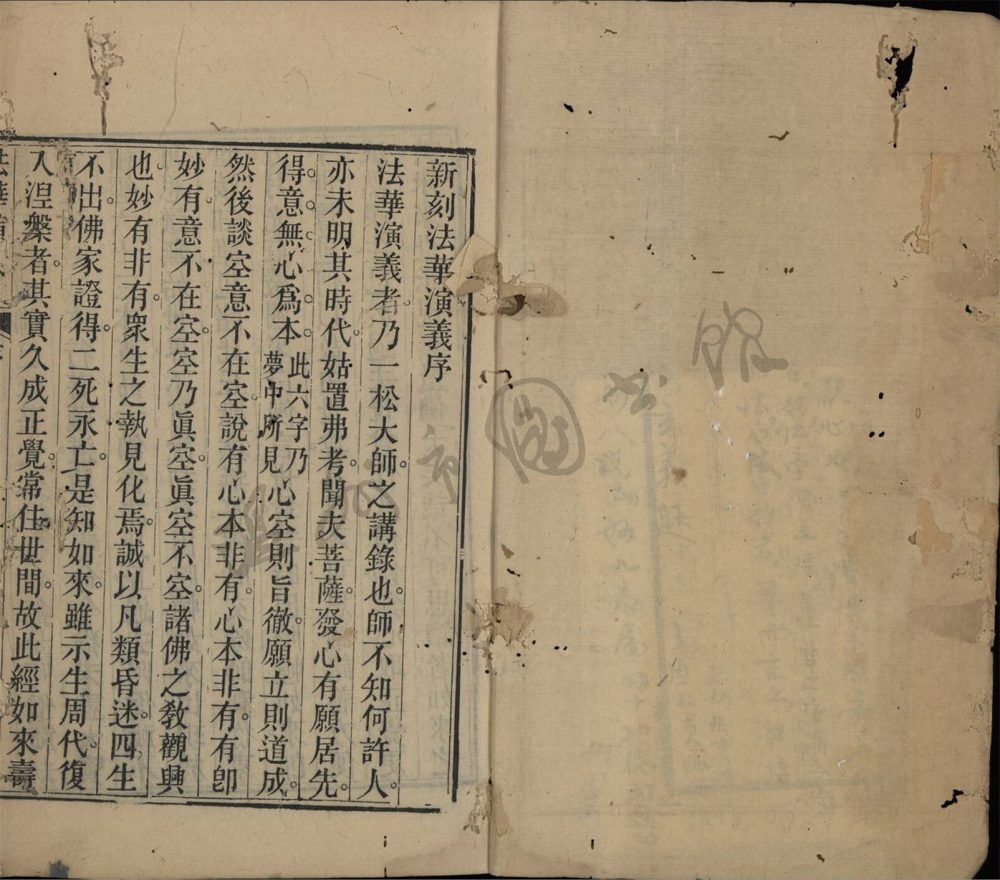 新刻法華演義序
法華演義者乃一松大師之講錄也師不知何許人
亦未明其時代姑置弗考聞夫菩薩發心有願居先
得意無心爲本此六字乃夢中所見心空則旨徹願立則道成
然後談空意不在空說有心本非有心本非有有卽
妙有意不在空空乃眞空眞空不空諸佛之敎觀興
也妙有非有衆生之執見化焉誠以凡類昏迷四生
不出佛家證得二死永亡是知如來雖示生周代復
入涅槃者其實久成正覺常住世間故此經如來壽
法華演義